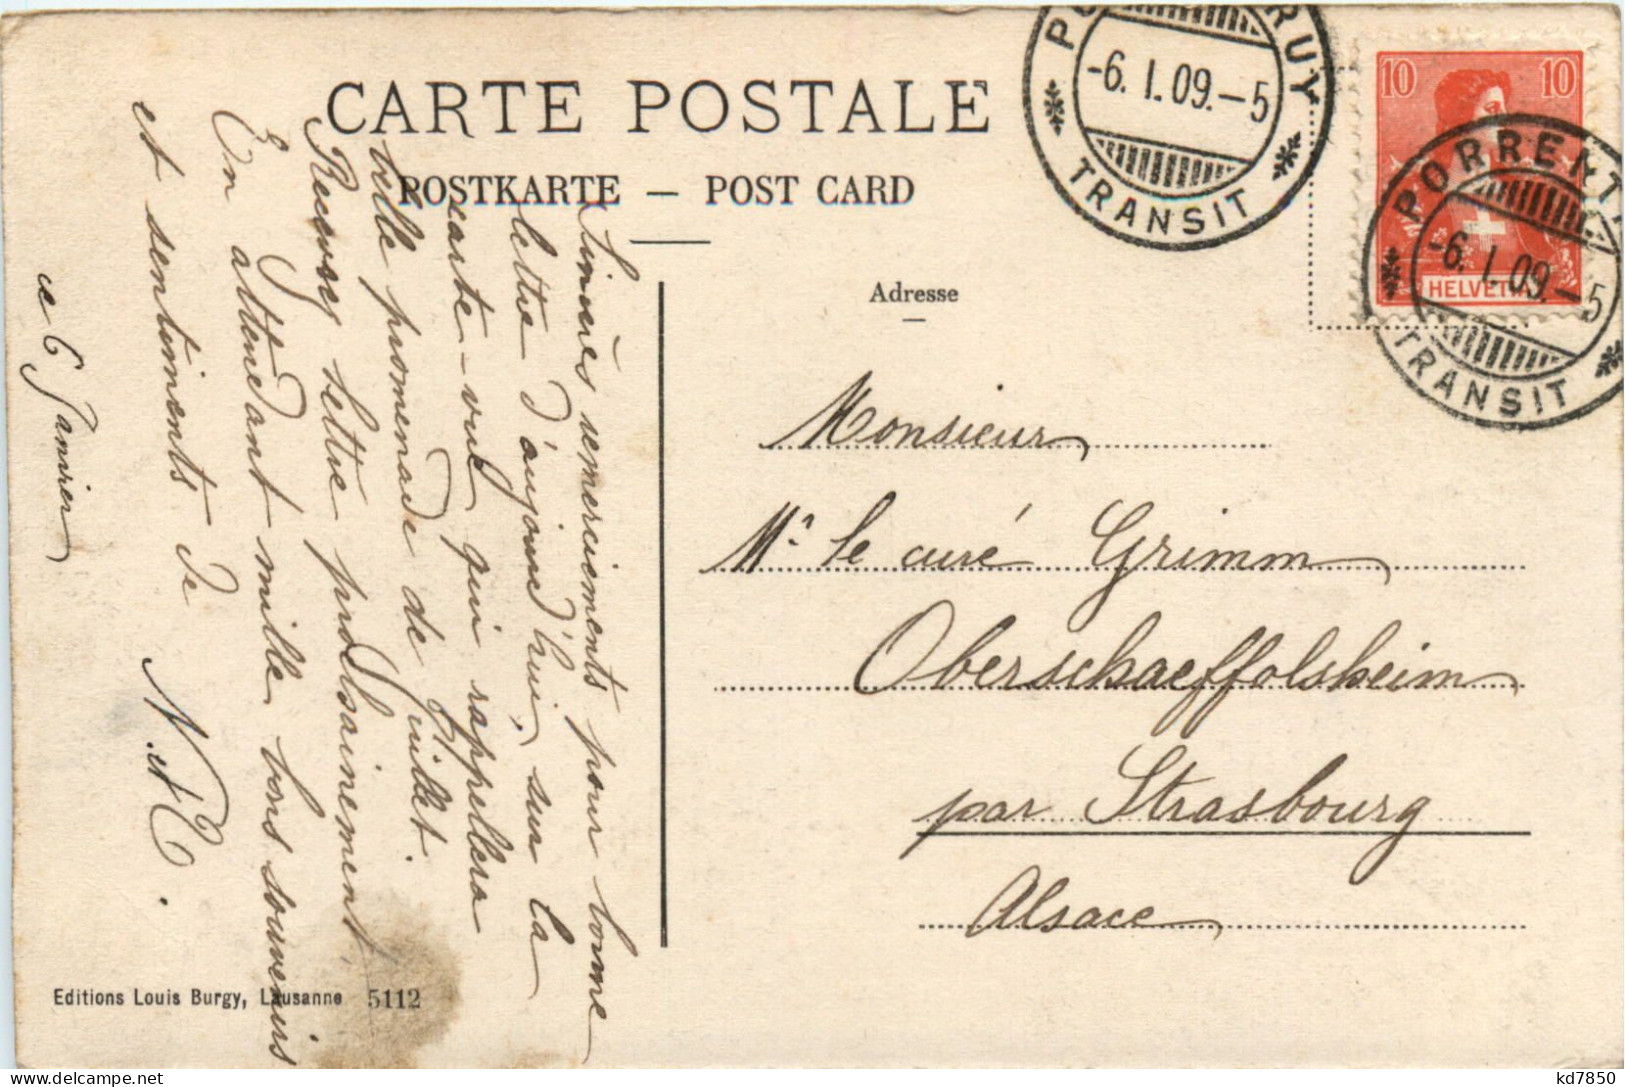 CARTE POSTALE
POSTKARTE — POST CARD
Adresse
PORRENTRUY
-6. I. 09. - 5
TRANSIT
10 10
HELVETIA
PORRENTRUY
-6. I. 09. - 5
TRANSIT
Sincères remerciements pour bonne
lettre d'aujourd'hui, sur la
carte-vue qui rappellera
belle promenade de Juillet.
Recevrez lettre prochainement.
En attendant mille bons souvenirs
et sentiments de
N. et C.
ce 6 Janvier
Monsieur
Mr le curé Grimm
Oberschaeffolsheim
par Strasbourg
Alsace
Editions Louis Burgy, Lausanne 5112
kd7850